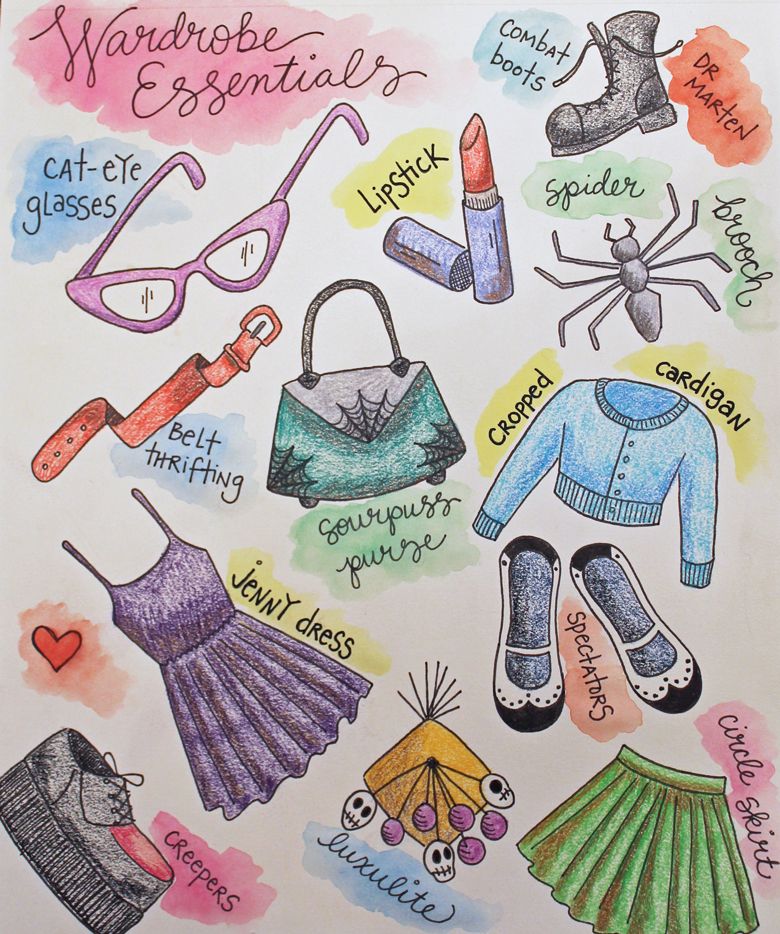 Wardrobe
Essentials
combat
boots
DR
MARTEN
CAT-EYE
glasses
LIPSTICK
spider
brooch
BELT
THRIFTING
sourpuss
purse
CROPPED
CARDIGAN
JENNY DRESS
SPECTATORS
circle skirt
CREEPERS
luxulite